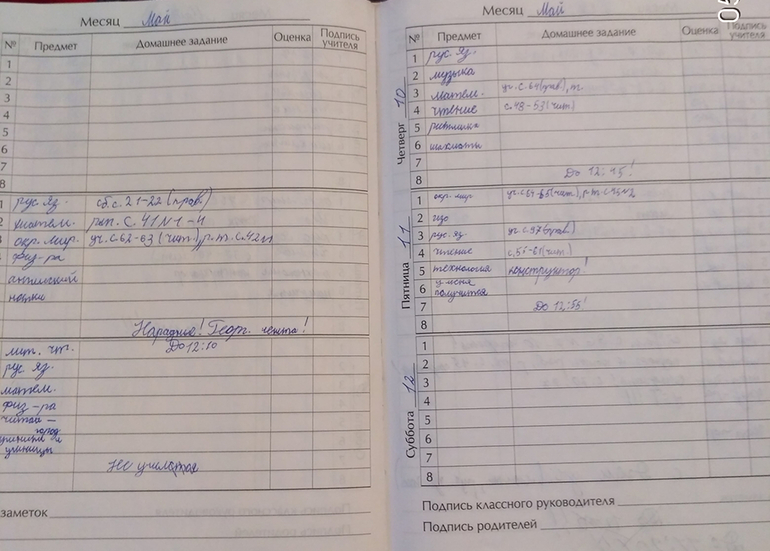 Месяц Май
№ Предмет Домашнее задание Оценка Подпись учителя
1
2
3
4
5
6
7
8
1 рус. яз. сб. с. 21-22 (прав.)
2 матем. рт. с. 41 N 1-4
3 окр. мир. уч. с. 62-63 (чит.), р.т. с. 42
физ-ра
английский
Нарядно! Георг. лента!
лит. чт. До 12:10
рус. яз.
матем.
физ-ра
читай-
город
ученицы
Не учимся
заметок
Месяц Май
№ Предмет Домашнее задание Оценка Подпись учителя
Четверг 10
1 рус. яз.
2 музыка
3 матем. уч. с. 64 (прав), т.
4 чтение с. 48-53 (чит)
5 ритмика
6 шахматы
7
8 До 12:15!
Пятница 11
1 окр. мир уч. с. 64-65 (чит.), р.т.
2 изо
3 рус. яз. уч. с. 97 (прав)
4 чтение с. 56-61 (чит)
5 технология конструктор!
6 у меня
получится
7 До 12:55!
8
Суббота 12
1
2
3
4
5
6
7
8
Подпись классного руководителя
Подпись родителей